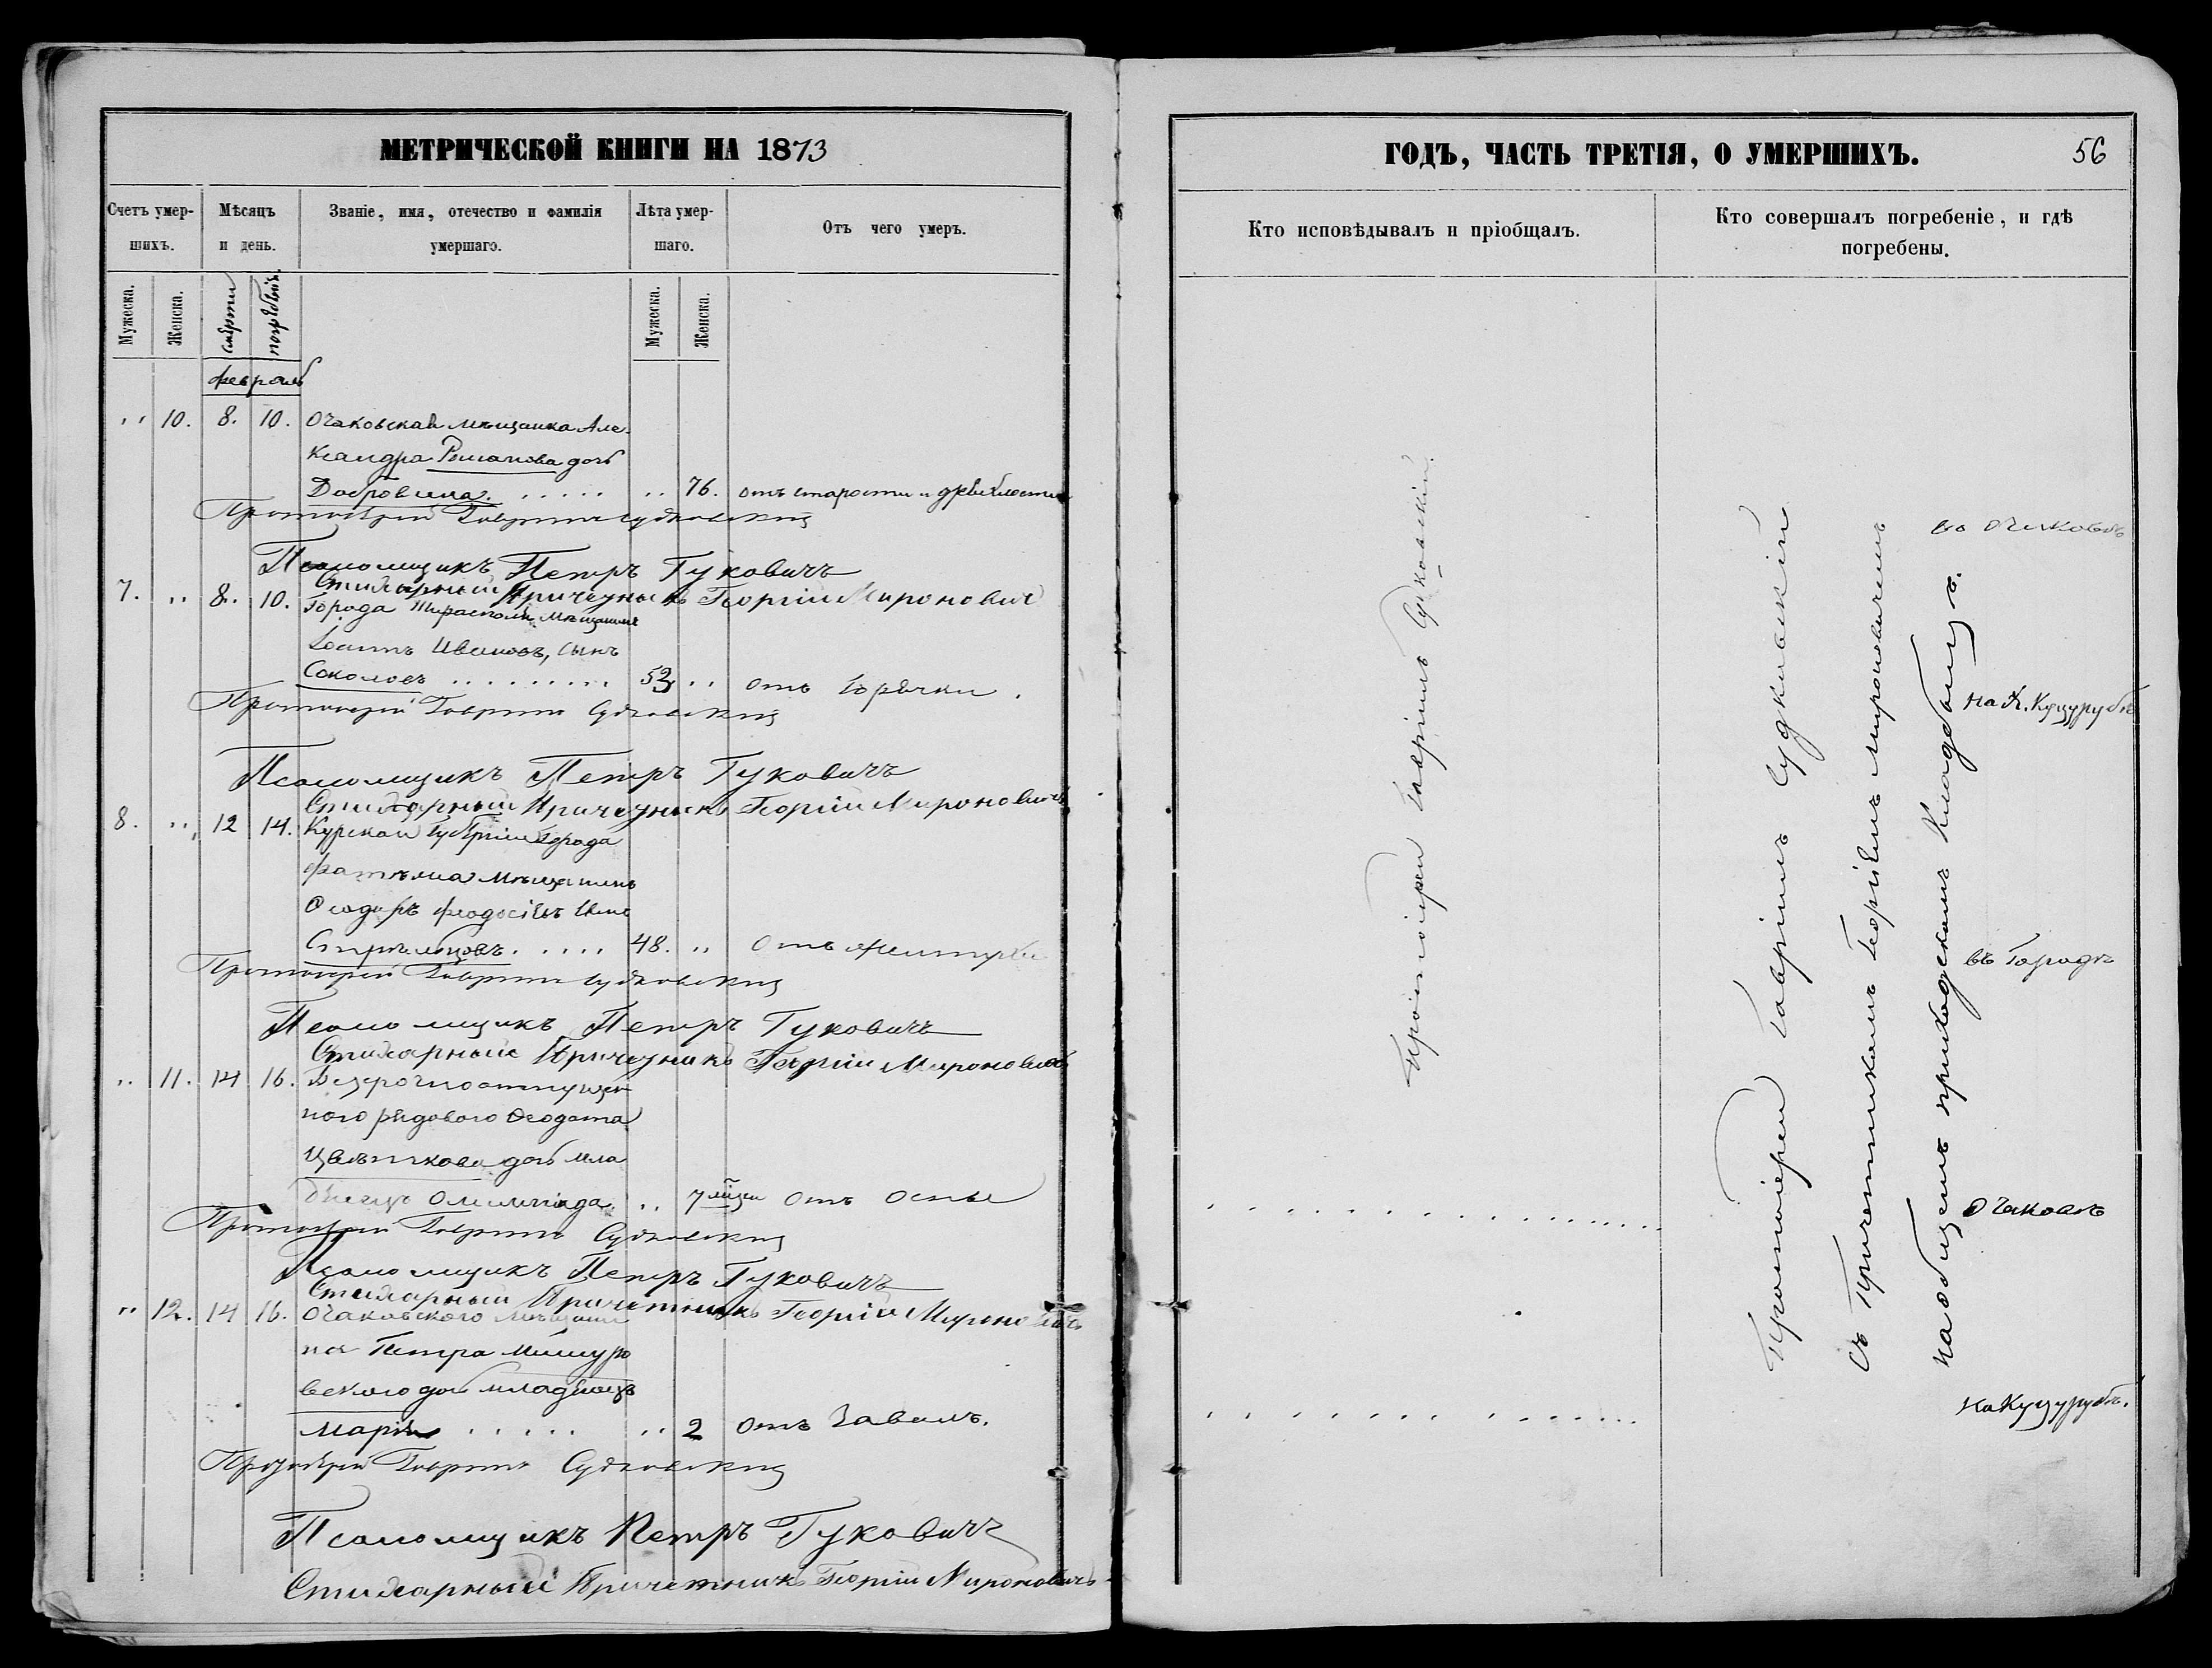 МЕТРИЧЕСКОЙ КНИГИ НА 1873
Счетъ умер-
шихъ.
Мѣсяцъ
и день.
Званіе, имя, отечество и фамилія
умершаго.
Лѣта умер-
шаго.
Отъ чего умеръ.
Мужеска.
Женска.
смерти
погребенія
Мужеска.
Женска.
февраль
,, 10. 8. 10. Очаковская мѣщанка Але-
ксандра Романова дочь
Добровина. ..... ,, 76. отъ старости и дряхлости
Протоіерей Гавріилъ Судковскій
Псаломщикъ Петръ Гуковичъ
Стихарный Причетникъ Георгій Мироновичъ
7. ,, 8. 10. Города Тирасполя мѣщанинъ
Іоаннъ Ивановъ, сынъ
Соколовъ ......... 53 ,, отъ горячки.
Протоіерей Гавріилъ Судковскій
Псаломщикъ Петръ Гуковичъ
Стихарный Причетникъ Георгій Мироновичъ
8. ,, 12 14. Курской Губерніи Города
Фатежа мѣщанинъ
Ѳеодоръ Ѳеодосіевъ сынъ
Стрѣльцовъ. .... 48. ,, Отъ
Протоіерей Гавріилъ Судковскій
Псаломщикъ Петръ Гуковичъ
Стихарный Причетникъ Георгій Мироновичъ
,, 11. 14 16. Безсрочноотпущен
ного рядового Ѳеодота
Цвѣткова дочь мла
денецъ Олимпіада. ,, 7 мѣсяц Отъ Оспы
Протоіерей Гавріилъ Судковскій
Псаломщикъ Петръ Гуковичъ
Стихарный Причетникъ Георгій Мироновичъ
,, 12. 14 16. Очаковского мѣщани
на Петра
вского дочь младенецъ
Марія ..... ,, 2 Отъ Заваль.
Протоіерей Гавріилъ Судковскій
Псаломщикъ Петръ Гуковичъ
Стихарный Причетникъ Георгій Мироновичъ
ГОДЪ, ЧАСТЬ ТРЕТІЯ, О УМЕРШИХЪ.
56
Кто исповѣдывалъ и пріобщалъ.
Кто совершалъ погребеніе, и гдѣ
погребены.
Протоіерей Гавріилъ Судковскій.
Протоіерей Гавріилъ Судковскій
съ Причетникомъ Георгіемъ Мироновичемъ
на общемъ приходскомъ Кладбищѣ.
въ Очаковѣ
на Х. Куцурубѣ
въ Городѣ
Очаковѣ
на Куцурубѣ.